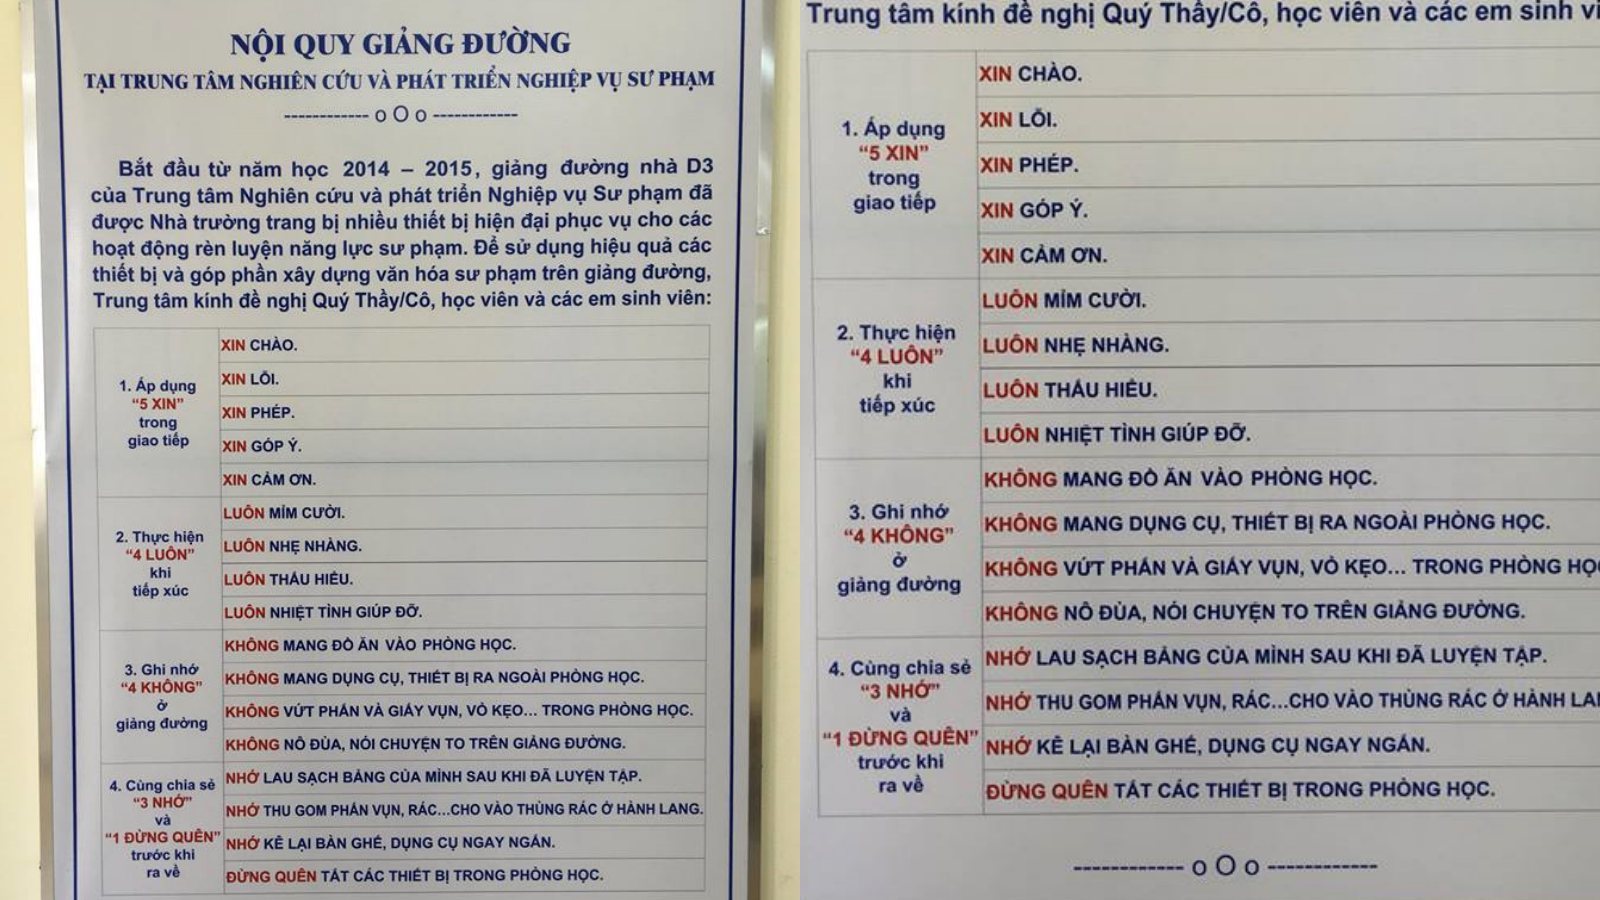 NỘI QUY GIẢNG ĐƯỜNG
TẠI TRUNG TÂM NGHIÊN CỨU VÀ PHÁT TRIỂN NGHIỆP VỤ SƯ PHẠM
------------ o O o ------------
Bắt đầu từ năm học 2014 – 2015, giảng đường nhà D3
của Trung tâm Nghiên cứu và phát triển Nghiệp vụ Sư phạm đã
được Nhà trường trang bị nhiều thiết bị hiện đại phục vụ cho các
hoạt động rèn luyện năng lực sư phạm. Để sử dụng hiệu quả các
thiết bị và góp phần xây dựng văn hóa sư phạm trên giảng đường,
Trung tâm kính đề nghị Quý Thầy/Cô, học viên và các em sinh viên:
1. Áp dụng
“5 XIN”
trong
giao tiếp
XIN CHÀO.
XIN LỖI.
XIN PHÉP.
XIN GÓP Ý.
XIN CẢM ƠN.
2. Thực hiện
“4 LUÔN”
khi
tiếp xúc
LUÔN MỈM CƯỜI.
LUÔN NHẸ NHÀNG.
LUÔN THẤU HIỂU.
LUÔN NHIỆT TÌNH GIÚP ĐỠ.
3. Ghi nhớ
“4 KHÔNG”
ở
giảng đường
KHÔNG MANG ĐỒ ĂN VÀO PHÒNG HỌC.
KHÔNG MANG DỤNG CỤ, THIẾT BỊ RA NGOÀI PHÒNG HỌC.
KHÔNG VỨT PHẤN VÀ GIẤY VỤN, VỎ KẸO... TRONG PHÒNG HỌC.
KHÔNG NÔ ĐÙA, NÓI CHUYỆN TO TRÊN GIẢNG ĐƯỜNG.
4. Cùng chia sẻ
“3 NHỚ”
và
“1 ĐỪNG QUÊN”
trước khi
ra về
NHỚ LAU SẠCH BẢNG CỦA MÌNH SAU KHI ĐÃ LUYỆN TẬP.
NHỚ THU GOM PHẤN VỤN, RÁC...CHO VÀO THÙNG RÁC Ở HÀNH LANG.
NHỚ KÊ LẠI BÀN GHẾ, DỤNG CỤ NGAY NGẮN.
ĐỪNG QUÊN TẮT CÁC THIẾT BỊ TRONG PHÒNG HỌC.
Trung tâm kính đề nghị Quý Thầy/Cô, học viên và các em sinh vi
1. Áp dụng
“5 XIN”
trong
giao tiếp
XIN CHÀO.
XIN LỖI.
XIN PHÉP.
XIN GÓP Ý.
XIN CẢM ƠN.
2. Thực hiện
“4 LUÔN”
khi
tiếp xúc
LUÔN MỈM CƯỜI.
LUÔN NHẸ NHÀNG.
LUÔN THẤU HIỂU.
LUÔN NHIỆT TÌNH GIÚP ĐỠ.
3. Ghi nhớ
“4 KHÔNG”
ở
giảng đường
KHÔNG MANG ĐỒ ĂN VÀO PHÒNG HỌC.
KHÔNG MANG DỤNG CỤ, THIẾT BỊ RA NGOÀI PHÒNG HỌC.
KHÔNG VỨT PHẤN VÀ GIẤY VỤN, VỎ KẸO... TRONG PHÒNG HỌ
KHÔNG NÔ ĐÙA, NÓI CHUYỆN TO TRÊN GIẢNG ĐƯỜNG.
4. Cùng chia sẻ
“3 NHỚ”
và
“1 ĐỪNG QUÊN”
trước khi
ra về
NHỚ LAU SẠCH BẢNG CỦA MÌNH SAU KHI ĐÃ LUYỆN TẬP.
NHỚ THU GOM PHẤN VỤN, RÁC...CHO VÀO THÙNG RÁC Ở HÀNH LA
NHỚ KÊ LẠI BÀN GHẾ, DỤNG CỤ NGAY NGẮN.
ĐỪNG QUÊN TẮT CÁC THIẾT BỊ TRONG PHÒNG HỌC.
------------ o O o ------------